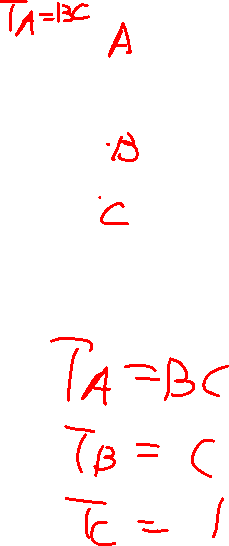 T_A=BC
A
·B
·C
T_A=BC
T_B=C
T_C=1